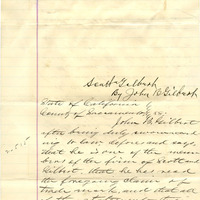 Scott & Gilbert
By John W Gilbert
State of California
County of Sacramento } ss
John W. Gilbert
after being duly sworn accord
ing to law deposes and says
that he is one of the mem
bers of the firm of Scott and
Gilbert, that he has read
the foregoing claim of
Trade mark, and that all
of the